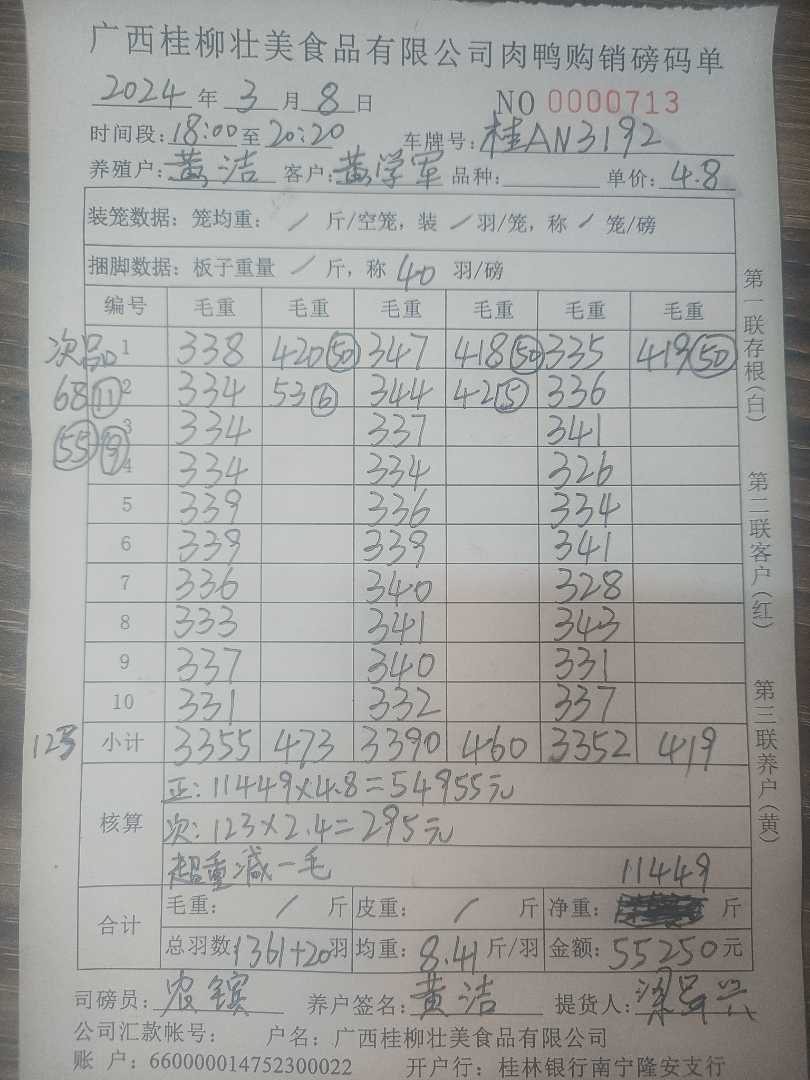 广西桂柳壮美食品有限公司肉鸭购销磅码单
2024 年 3 月 8 日 NO 0000713
时间段: 18:00 至 20:20 车牌号: 桂AN3192
养殖户: 黄洁 客户: 黄学军 品种: 单价: 4.8
装笼数据: 笼均重: / 斤/空笼, 装 / 羽/笼, 称 / 笼/磅
捆脚数据: 板子重量 / 斤, 称 40 羽/磅
编号 毛重 毛重 毛重 毛重 毛重 毛重
次品 1 338 420 (50) 347 418 (50) 335 419 (50)
68 (11) 2 334 53 (6) 344 42 (5) 336
(55) (9) 3 334 337 341
4 334 334 326
5 339 336 334
6 339 339 341
7 336 340 328
8 333 341 343
9 337 340 331
10 331 332 337
123 小计 3355 473 3390 460 3352 419
核算 正: 11449×4.8=54955元
次: 123×2.4=295元
超重减一毛 11449
合计 毛重: / 斤 皮重: / 斤 净重: 斤
总羽数: 1361+20 羽 均重: 8.41 斤/羽 金额: 55250 元
司磅员: 农镔 养户签名: 黄洁 提货人: 梁
公司汇款帐号: 户名: 广西桂柳壮美食品有限公司
账 户: 660000014752300022 开户行: 桂林银行南宁隆安支行
第一联存根(白) 第二联客户(红) 第三联养户(黄)